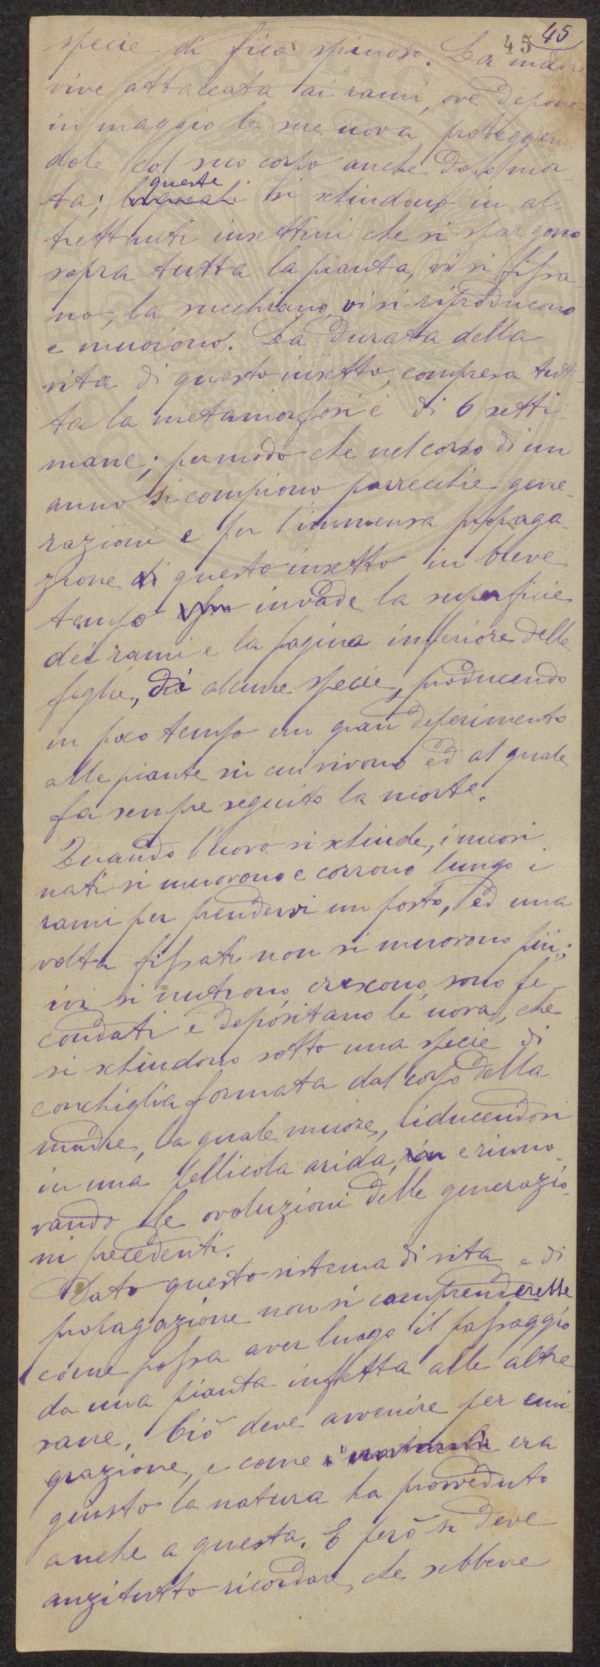 45 45
specie di fico spinoso. La madre
vive attaccata ai rami, ove depone
in maggio le sue uova, proteggen
dole col suo corpo anche dopo mor
ta; queste si schiudono in al-
trettanti insettini che si spargono
sopra tutta la pianta, vi si fissa
no, la succhiano, vi si riproducono
e muoiono. La durata della
vita di questo insetto, compresa tut-
ta la metamorfosi è di 6 setti-
mane; per modo che nel corso di un
anno si compiono parecchie gene-
razioni e per l'immensa propaga-
zione di questo insetto in breve
tempo invade la superficie
dei rami e la pagina inferiore delle
foglie, di alcune specie, producendo
in poco tempo un gran deperimento
alle piante su cui vivono ed al quale
fa sempre seguito la morte.
Quando l'uovo si schiude, i nuovi
nati si muovono e corrono lungo i
rami per prendervi un posto, ed una
volta fissati non si muovono più;
ivi si nutrono, crescono, sono fe-
condati e depositano le uova, che
si schiudono sotto una specie di
conchiglia formata dal corpo della
madre, la quale muore, riducendosi
in una pellicola arida, e rinno-
vando le evoluzioni delle generazio-
ni precedenti.
Dato questo sistema di vita e di
prolagazione non si comprenderebbe
come possa aver luogo il passaggio
da una pianta infetta alle altre
sane. Ciò deve avvenire per emi
grazione, e come era
giusto la natura ha provveduto
anche a questa. E però si deve
anzitutto ricordare, che sebbene